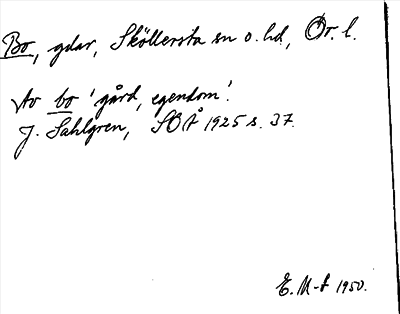 Bo, gdar, Sköllersta sn o. hd, Ör. l.
Av bo 'gård, egendom'.
J. Sahlgren, SOÅ 1925 s. 37.
E. M-t 1950.